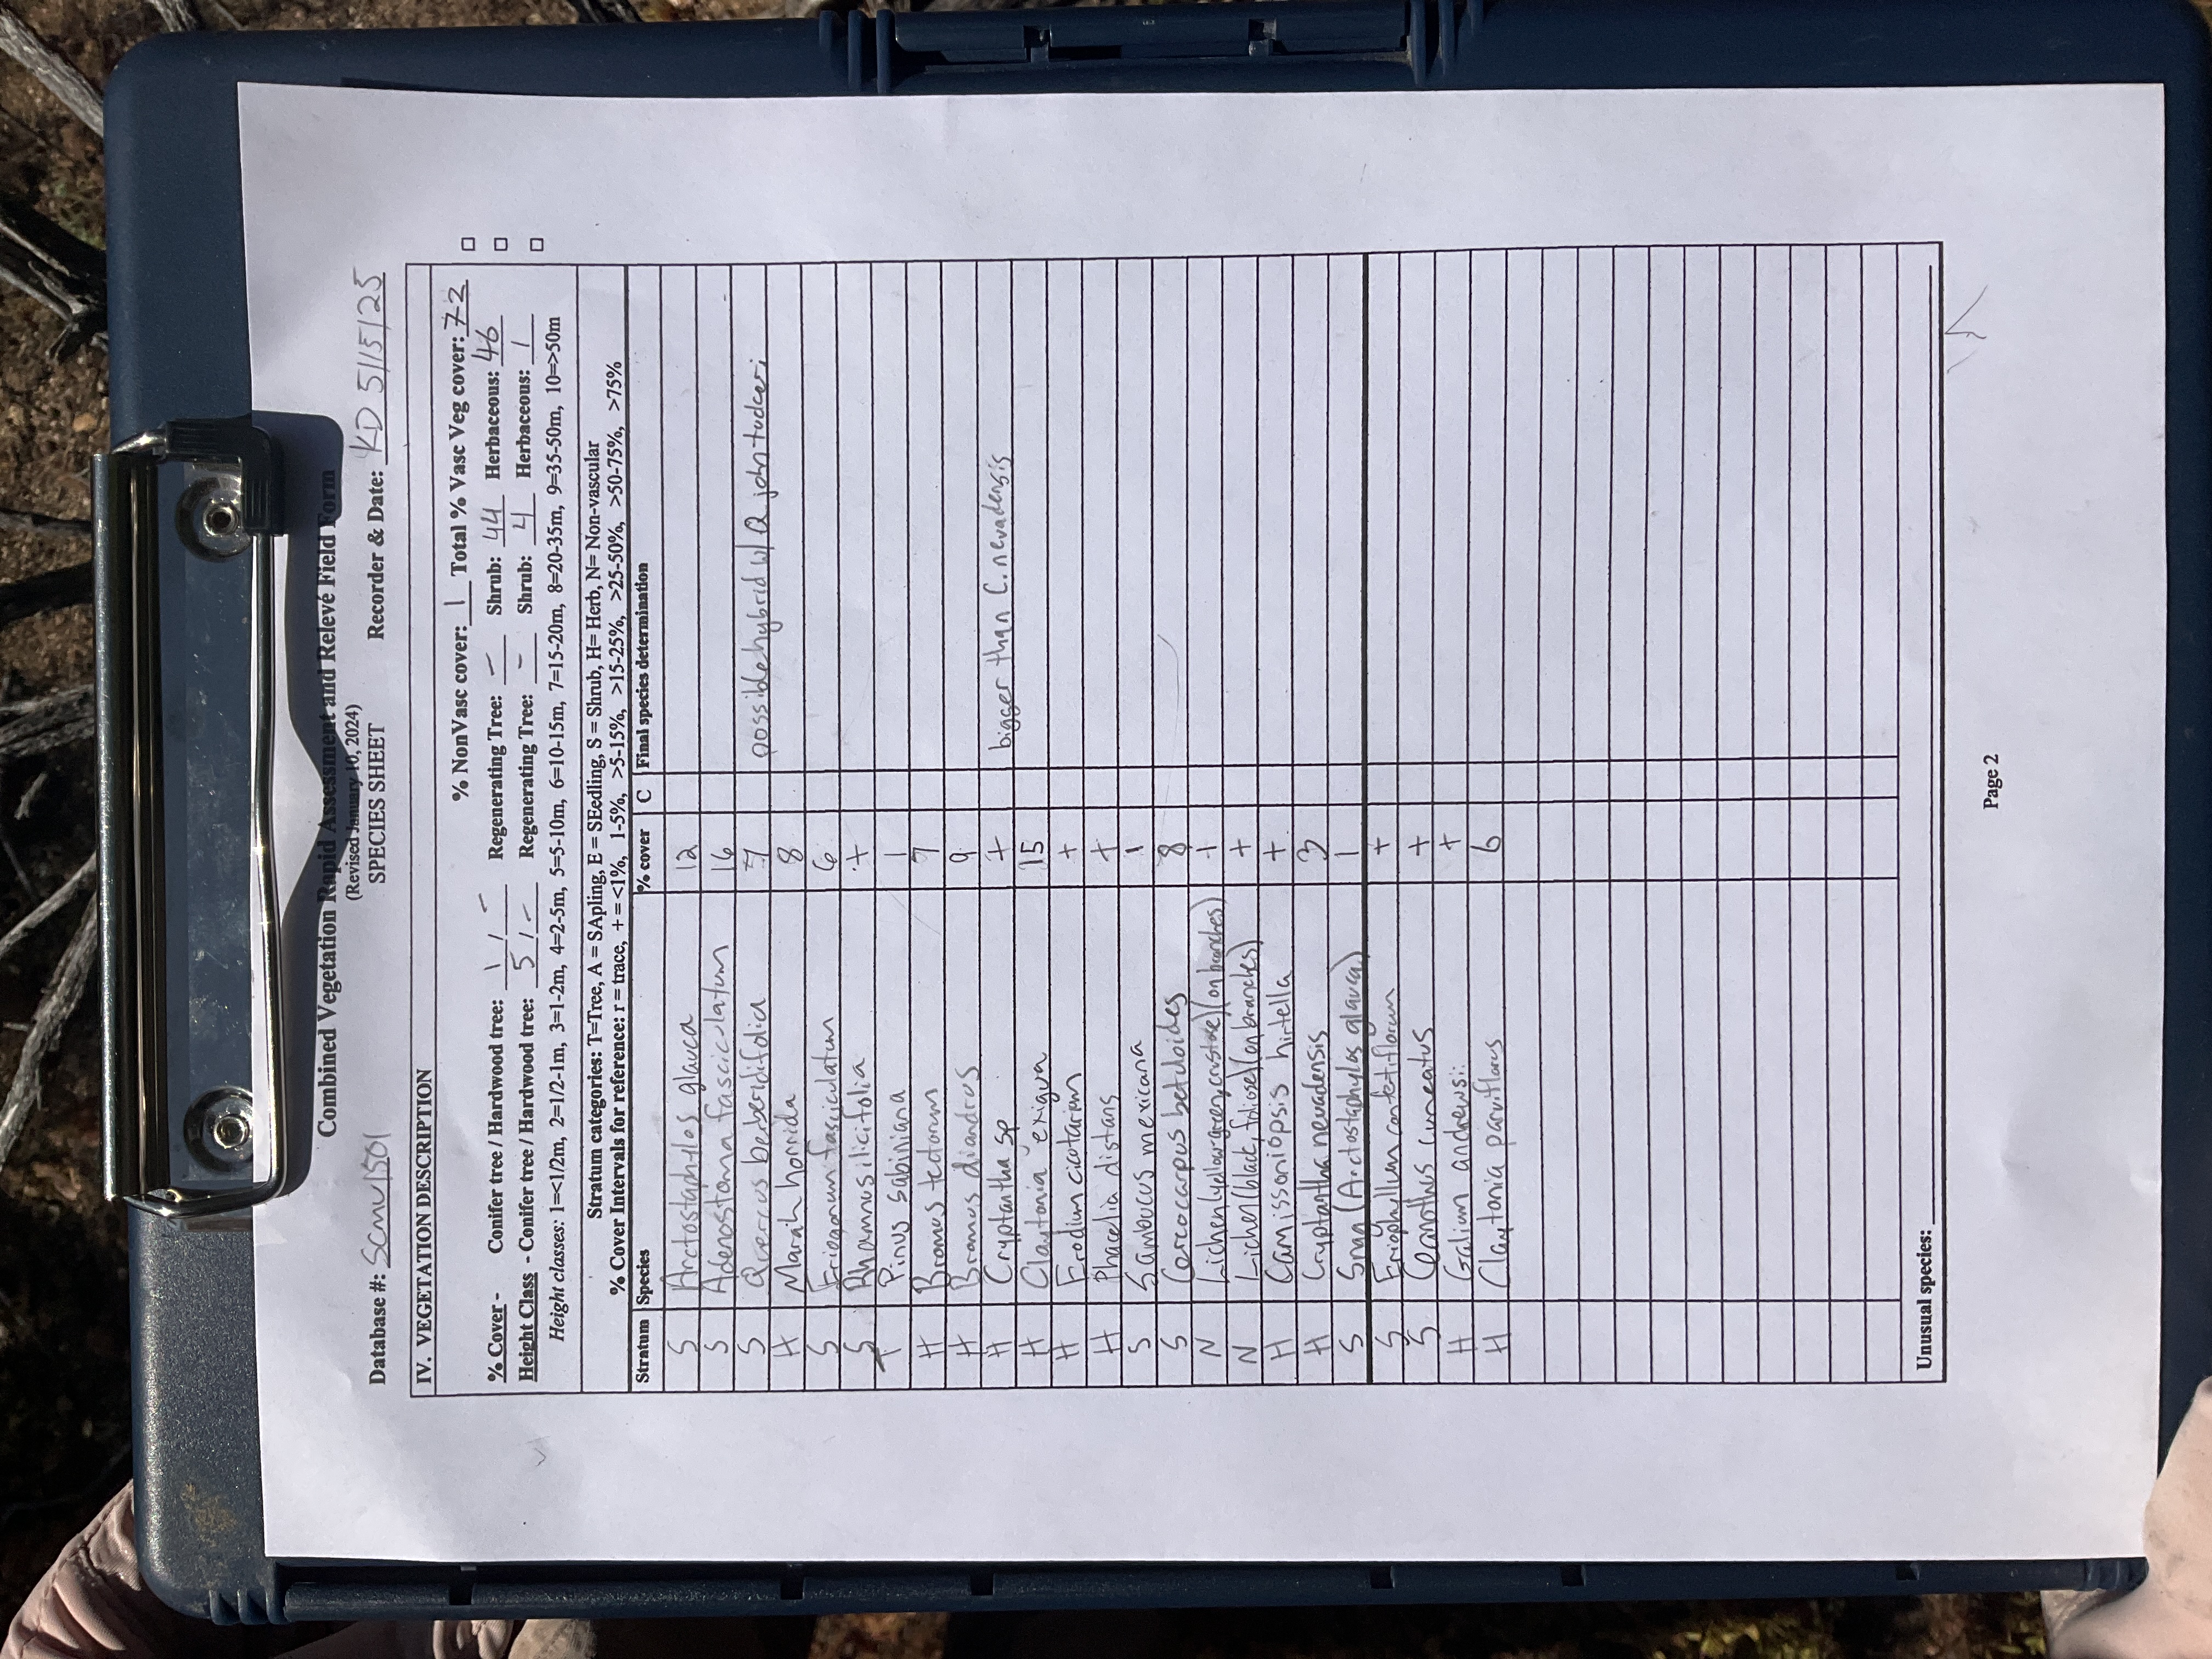 Combined Vegetation Rapid Assessment and Relevé Field Form
(Revised January 10, 2024)
SPECIES SHEET
Database #: Scmu1501 Recorder & Date: KD 5/15/25
IV. VEGETATION DESCRIPTION
% NonVasc cover: 1 Total % Vasc Veg cover: 72
% Cover - Conifer tree / Hardwood tree: 1 / - Regenerating Tree: - Shrub: 44 Herbaceous: 46
Height Class - Conifer tree / Hardwood tree: 5 / - Regenerating Tree: - Shrub: 4 Herbaceous: 1
Height classes: 1=<1/2m, 2=1/2-1m, 3=1-2m, 4=2-5m, 5=5-10m, 6=10-15m, 7=15-20m, 8=20-35m, 9=35-50m, 10=>50m
Stratum categories: T=Tree, A = SApling, E = SEedling, S = Shrub, H= Herb, N= Non-vascular
% Cover Intervals for reference: r = trace, + = <1%, 1-5%, >5-15%, >15-25%, >25-50%, >50-75%, >75%
Stratum Species % cover C Final species determination
S Arctostaphylos glauca 12
S Adenostoma fasciculatum 16
S Quercus berberidifolia 7 possible hybrid w/ Q. john tuckeri
H Marah horrida 8
S Eriogonum fasciculatum 6
S Rhamnus ilicifolia +
T Pinus sabiniana 1
H Bromus tectorum 7
H Bromus diandrus 9
H Cryptantha sp + bigger than C. nevadensis
H Claytonia exigua 15
H Erodium cicutarium +
H Phacelia distans +
S Sambucus mexicana 1
S Cercocarpus betuloides 8
N Lichen (yellow green, crustose) (on branches) +
N Lichen (black, foliose) (on branches) +
H Camissoniopsis hirtella +
H Cryptantha nevadensis 3
S Snag (Arctostaphylos glauca) 1
S Eriophyllum confertiflorum +
S Ceanothus cuneatus +
H Galium andrewsii +
H Claytonia parviflorus 6
Unusual species:
Page 2